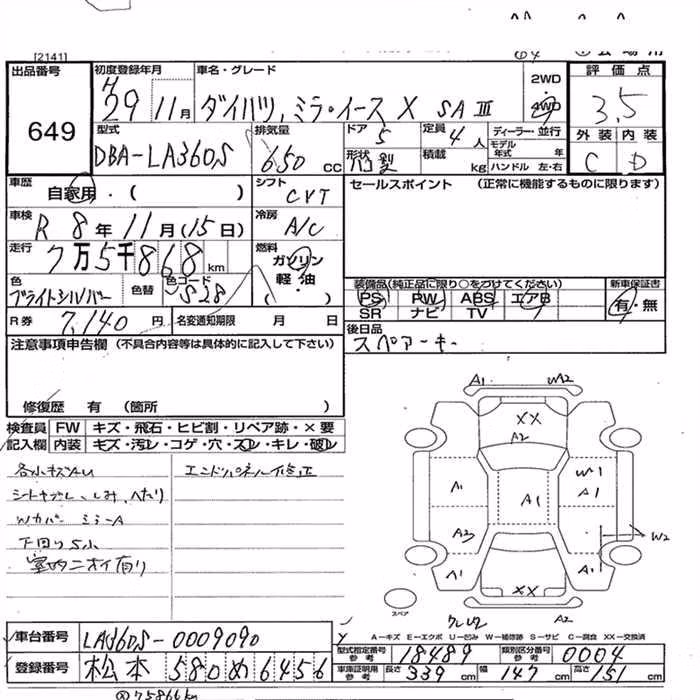 [2141]
出品番号
649
初度登録年月
H29年11月
車名・グレード
ダイハツ、ミラ・イース X SAⅢ
2WD
4WD
評価点
3.5
外装 内装
C D
型式
DBA-LA360S
排気量
650 cc
ドア 5
定員 4人
ディーラー・並行
モデル年式 年
形状 ハコ型
積載 kg
ハンドル 左・右
車歴
自家用・( )
シフト
CVT
セールスポイント (正常に機能するものに限ります)
車検
R 8年11月(15日)
冷房
A/C
走行
7万5千868km
燃料
ガソリン
軽油
・
( )
色
ブライトシルバー
色替
色コード
S28
装備品(純正品に限り○をつけてください)
PS PW ABS エアB
SR ナビ TV
新車保証書
有・無
R券 7,140円
名変通知期限 月 日
後日品
スペアーキー
注意事項申告欄(不具合内容等は具体的に記入して下さい)
修復歴 有 (箇所 )
検査員記入欄
FW キズ・飛石・ヒビ割・リペア跡・×要
内装 キズ・汚レ・コゲ・穴・スレ・キレ・破レ
各小キズAU
エンドパネル修正
シートキズレ、しみ、へたり
Wカバー ミラーA
下回りS小
室内ニオイ有り
A1 W2
XX
A2
A1 A1 W1 A1
A2 W2
A1 A1
XX
スペア
A2
A-キズ E-エクボ U-凹み W-補修跡 S-サビ C-腐食 XX-交換済
車台番号
LA360S-0009090
型式指定番号参考 18489
類別区分番号参考 0004
登録番号
松本 580 め 6456
車庫証明用参考
長さ 339 cm
幅 147 cm
高さ 151 cm